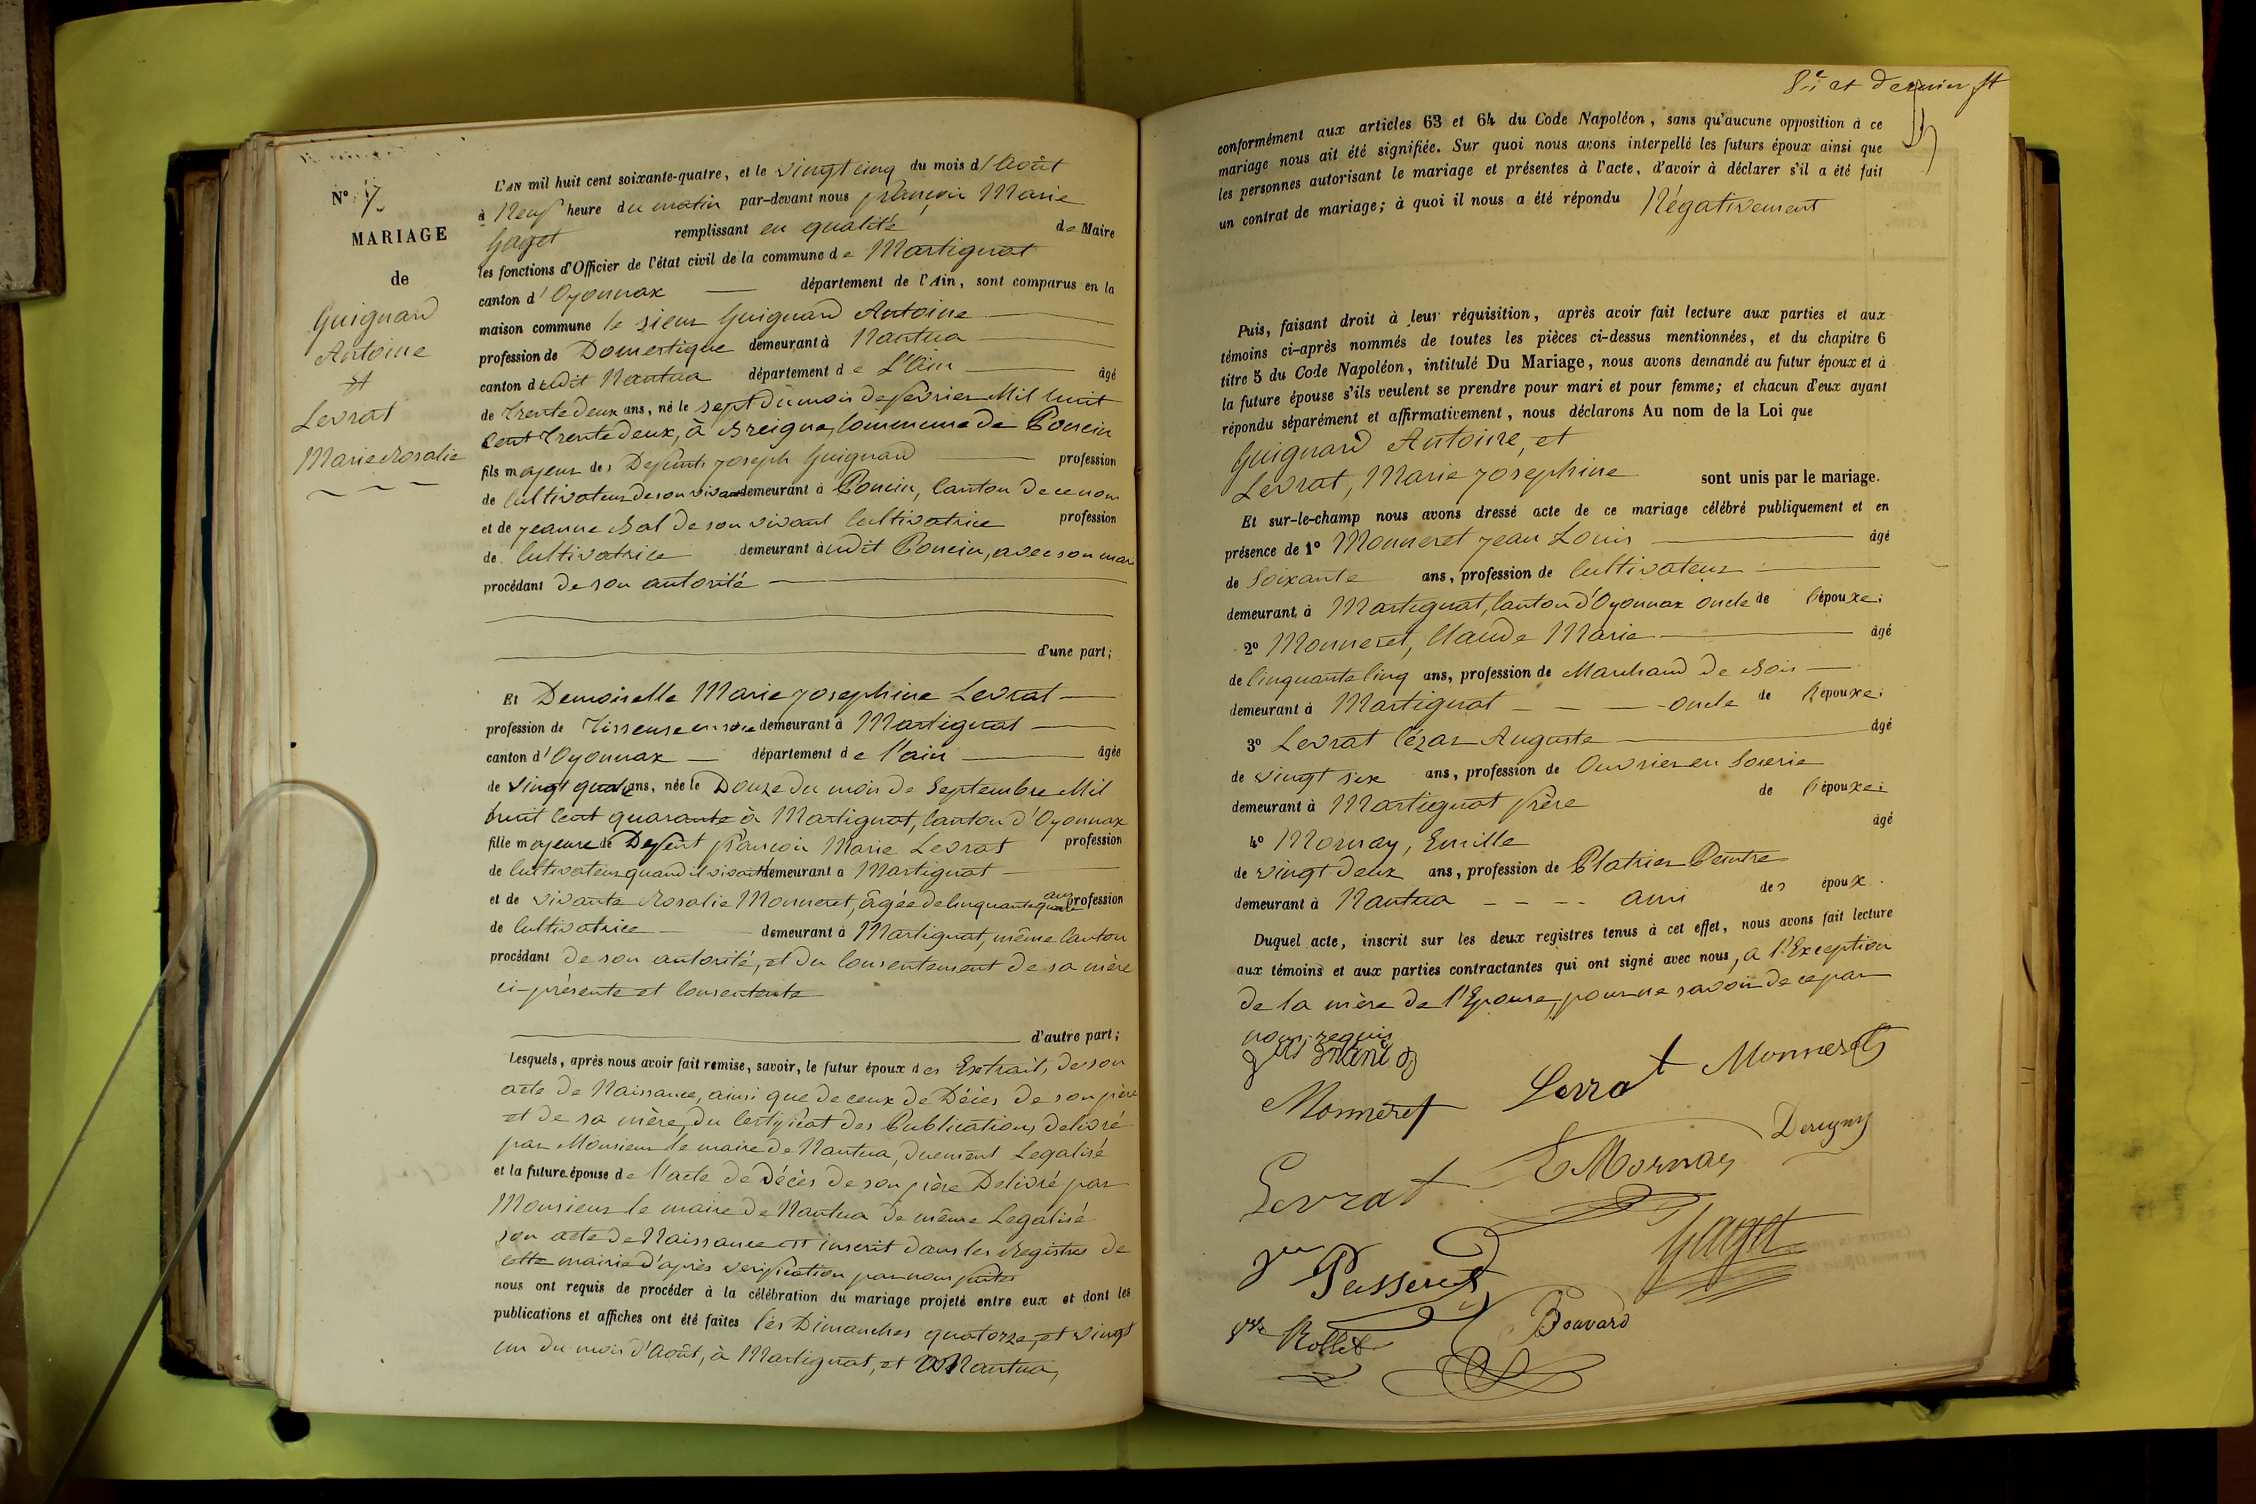 N° 7.
MARIAGE
de
Guignard
Antoine
et
Levrat
Marie Rosalie
L'AN mil huit cent soixante-quatre, et le vingt cinq du mois d'Août
à Neuf heure du matin par-devant nous françois Marie
Gaget remplissant en qualité de Maire
les fonctions d'Officier de l'état civil de la commune de Martignat
canton d'Oyonnax département de l'Ain, sont comparus en la
maison commune le sieur Guignard Antoine
profession de Domestique demeurant à Nantua
canton dudit Nantua département de L'Ain âgé
de Trente deux ans, né le sept du mois de fevrier Mil huit
Cent Trente deux, à Breigne, Commune de Poncin
fils majeur des Defunts joseph Guignard profession
de Cultivateur de son vivant demeurant à Poncin, Canton de ce nom
et de jeanne Bal de son vivant Cultivatrice profession
de Cultivatrice demeurant à udit Poncin, avec son mari
procédant de son autorité
d'une part;
Et Demoiselle Marie josephine Levrat
profession de Tisseuse en soie demeurant à Martignat
canton d'Oyonnax département de l'ain âgée
de vingt quatre ans, née le Douze du mois de Septembre Mil
huit Cent quarante à Martignat, Canton d'Oyonnax
fille majeure de Defunt françois Marie Levrat profession
de Cultivateur quand il vivait demeurant à Martignat
et de vivante Rosalie Monneret, âgée de Cinquante quatre ans profession
de Cultivatrice demeurant à Martignat, même Canton
procédant de son autorité, et du Consentement de sa mère
ci-présente et Consentente
d'autre part;
Lesquels, après nous avoir fait remise, savoir, le futur époux des Extraits de son
acte de Naissance, ainsi que de ceux de Décès de son père
et de sa mère, du Certificat des Publications delivré
par Monsieur le maire de Nantua, duement Legalisé
et la future épouse de l'acte de décès de son père Delivré par
Monsieur le maire de Nantua de même Legalisé
son acte de Naissance est inscrit dans les Registres de
cette mairie d'après verification par nous faites
nous ont requis de procéder à la célébration du mariage projeté entre eux et dont les
publications et affiches ont été faites les Dimanches quatorze, et vingt
un du mois d'Août, à Martignat, et à Nantua,
et dernier ft
conformément aux articles 63 et 64 du Code Napoléon, sans qu'aucune opposition à ce
mariage nous ait été signifiée. Sur quoi nous avons interpellé les futurs époux ainsi que
les personnes autorisant le mariage et présentes à l'acte, d'avoir à déclarer s'il a été fait
un contrat de mariage; à quoi il nous a été répondu Négativement
Puis, faisant droit à leur réquisition, après avoir fait lecture aux parties et aux
témoins ci-après nommés de toutes les pièces ci-dessus mentionnées, et du chapitre 6
titre 5 du Code Napoléon, intitulé Du Mariage, nous avons demandé au futur époux et à
la future épouse s'ils veulent se prendre pour mari et pour femme; et chacun d'eux ayant
répondu séparément et affirmativement, nous déclarons Au nom de la Loi que
Guignard Antoine, et
Levrat, Marie josephine sont unis par le mariage.
Et sur-le-champ nous avons dressé acte de ce mariage célébré publiquement et en
présence de 1° Monneret jean Louis âgé
de Soixante ans, profession de Cultivateur
demeurant à Martignat, Canton d'Oyonnax oncle de l'épouxe;
2° Monneret, Claude Marie âgé
de Cinquante Cinq ans, profession de Marchand de Bois
demeurant à Martignat oncle de l'épouxe;
3° Levrat Cézar Auguste âgé
de vingt six ans, profession de Ouvrier en Soierie
demeurant à Martignat frère de l'épouxe;
4° Mornay, Emille âgé
de vingt deux ans, profession de Platrier Peintre
demeurant à Nantua ami des époux.
Duquel acte, inscrit sur les deux registres tenus à cet effet, nous avons fait lecture
aux témoins et aux parties contractantes qui ont signé avec nous, a l'Exception
de la mère de l'Epouse, pour ne savoir de ce par
nous requis
Monneret Levrat Monneret
Levrat E Mornay
Gaget
Rollet Bouvard